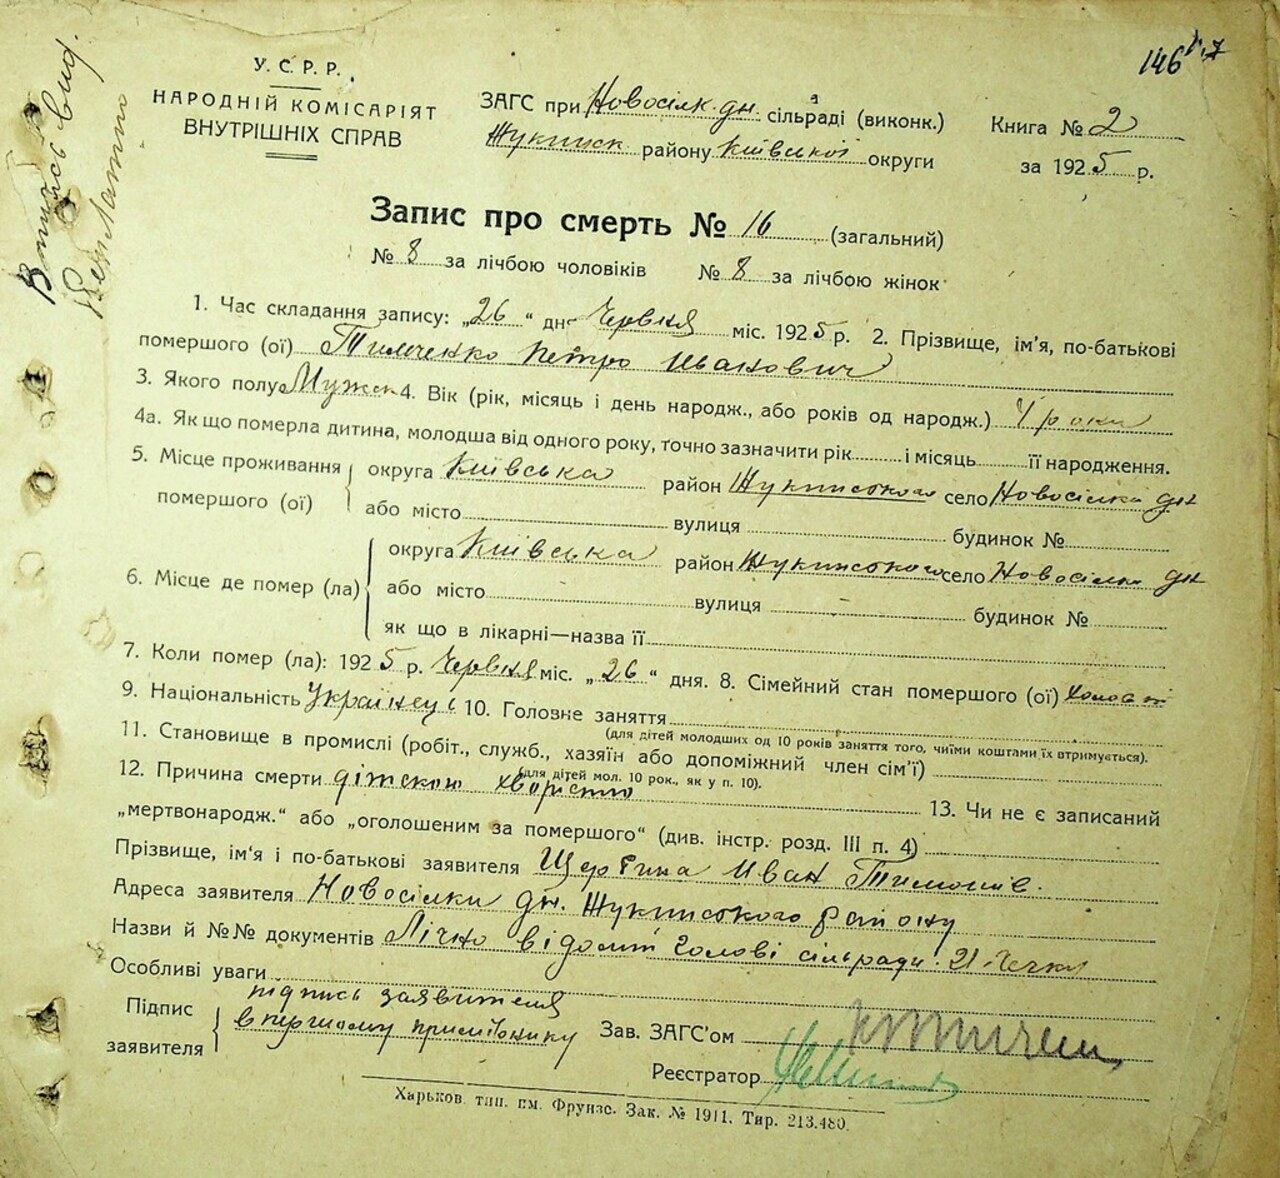 146
У. С. Р. Р.
НАРОДНІЙ КОМІСАРІЯТ
ВНУТРІШНІХ СПРАВ
ЗАГС при Новосілк. дн. сільраді (виконк.)
Жукинск району Київської округи
Книга № 2
за 1925 р.
Запис про смерть № 16 (загальний)
№ 8 за лічбою чоловіків № 8 за лічбою жінок
1. Час складання запису: „26“ дня Червня міс. 1925 р. 2. Прізвище, ім'я, по-батькові
помершого (ої) Тимченко Петро Іванович
3. Якого полу Мужск 4. Вік (рік, місяць і день народж., або років од народж.) 4 роки
4а. Як що померла дитина, молодша від одного року, точно зазначити рік і місяць її народження.
5. Місце проживання помершого (ої) округа Київська район Жукинського село Новосілки дн
або місто вулиця будинок №
6. Місце де помер (ла) округа Київська район Жукинського село Новосілки дн
або місто вулиця будинок №
як що в лікарні—назва її
7. Коли помер (ла): 1925 р. Червня міс. „26“ дня. 8. Сімейний стан помершого (ої)
9. Національність Українець 10. Головне заняття
(для дітей молодших од 10 років заняття того, чиїми коштами їх втримується).
11. Становище в промислі (робіт., служб., хазяїн або допоміжний член сім'ї)
(для дітей мол. 10 рок., як у п. 10).
12. Причина смерти дітскою хворістю 13. Чи не є записаний
„мертвонародж.“ або „оголошеним за помершого“ (див. інстр. розд. III п. 4)
Прізвище, ім'я і по-батькові заявителя Щербина Иван Тимофіїв.
Адреса заявителя Новосілки дн. Жукинського району
Назви й №№ документів Лічно відомий голові сільради
Особливі уваги
Підпис заявителя підпись заявителя
в першому примірнику
Зав. ЗАГС'ом
Реєстратор
Харьков. тип. ім. Фрунзе. Зак. № 1911. Тир. 213.480.